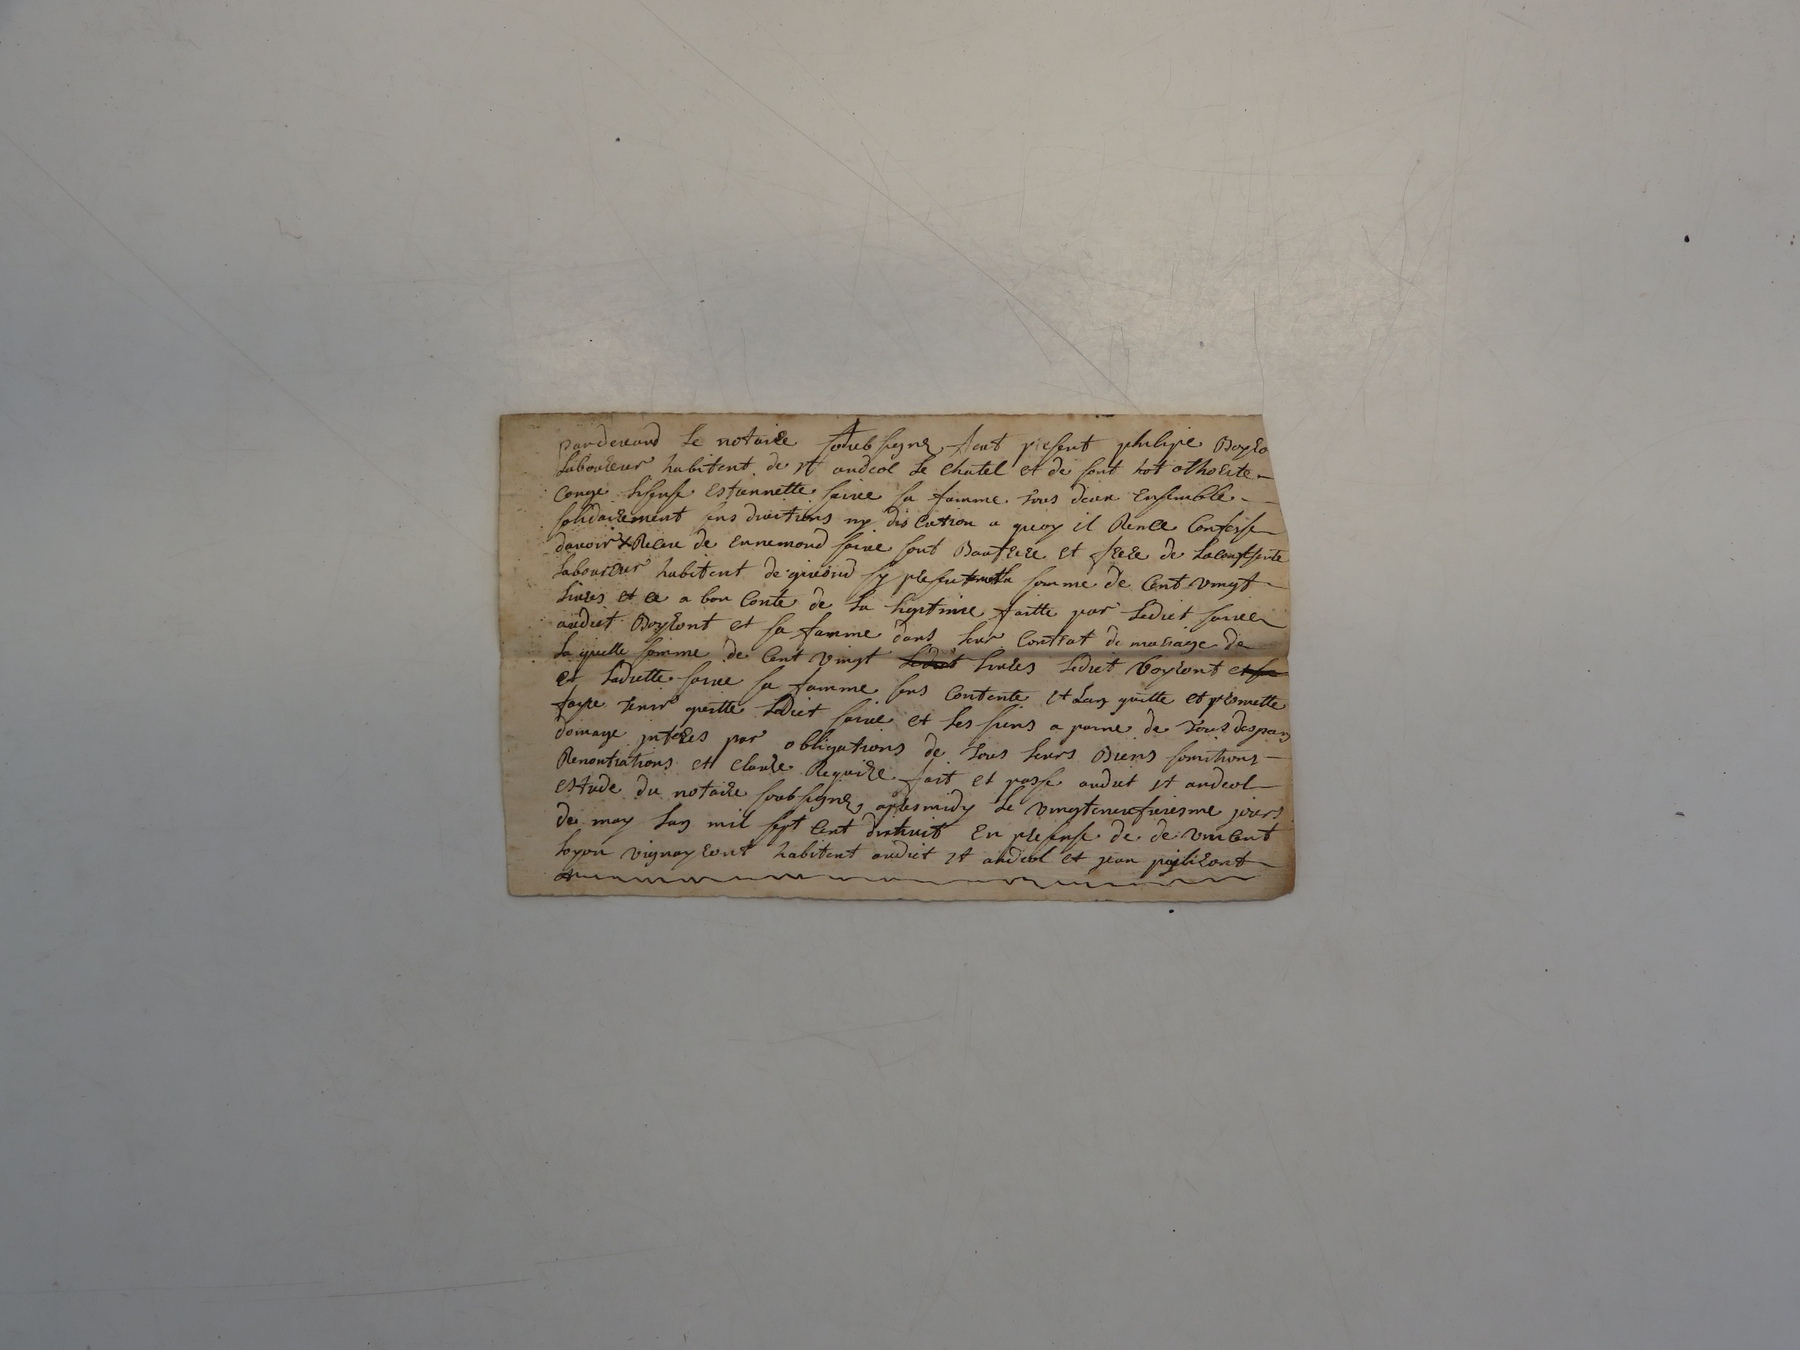 pardevand le notaire soubsigne feut presant philipe Boyro
laboureur habitent de st andeol le chatel et de sont hot othorite
conge lisense estiennette faure sa famme tous deux ensemble
solidairement sens divitions ny discution a quoy il Rence confesse
davoir Receu de ennemond faure sont Baufrere et frere de la confesente
laboureur habitent de givord sy presant la somme de cent vingt
livres et ce a bon conte de la legitime faitte par ledict faure
audict Boyront et sa famme dans leur contrat de mariage de
la quelle somme de cent vingt livres ledict boyront
et laditte faure sa famme sens contente et lan quitte et promette
faire tenir quitte ledict faure et les siens a paine de tous despans
domage interes par obligations de tous leurs Biens somitions
Renontiations et clause Requise fait et passe audict st andeol
estude du notaire soubsigne apresmidy le vingtneufviesme jours
de may lan mil sept cent dixhuit en presense de de vincent
loyon vigneyront habitent audict st andeol et jean